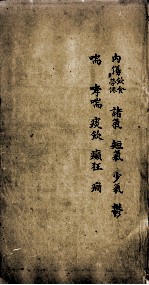 內傷飲食勞倦 諸氣 短氣 少氣 鬱
喘 哮喘 痰飲 癲狂 癇